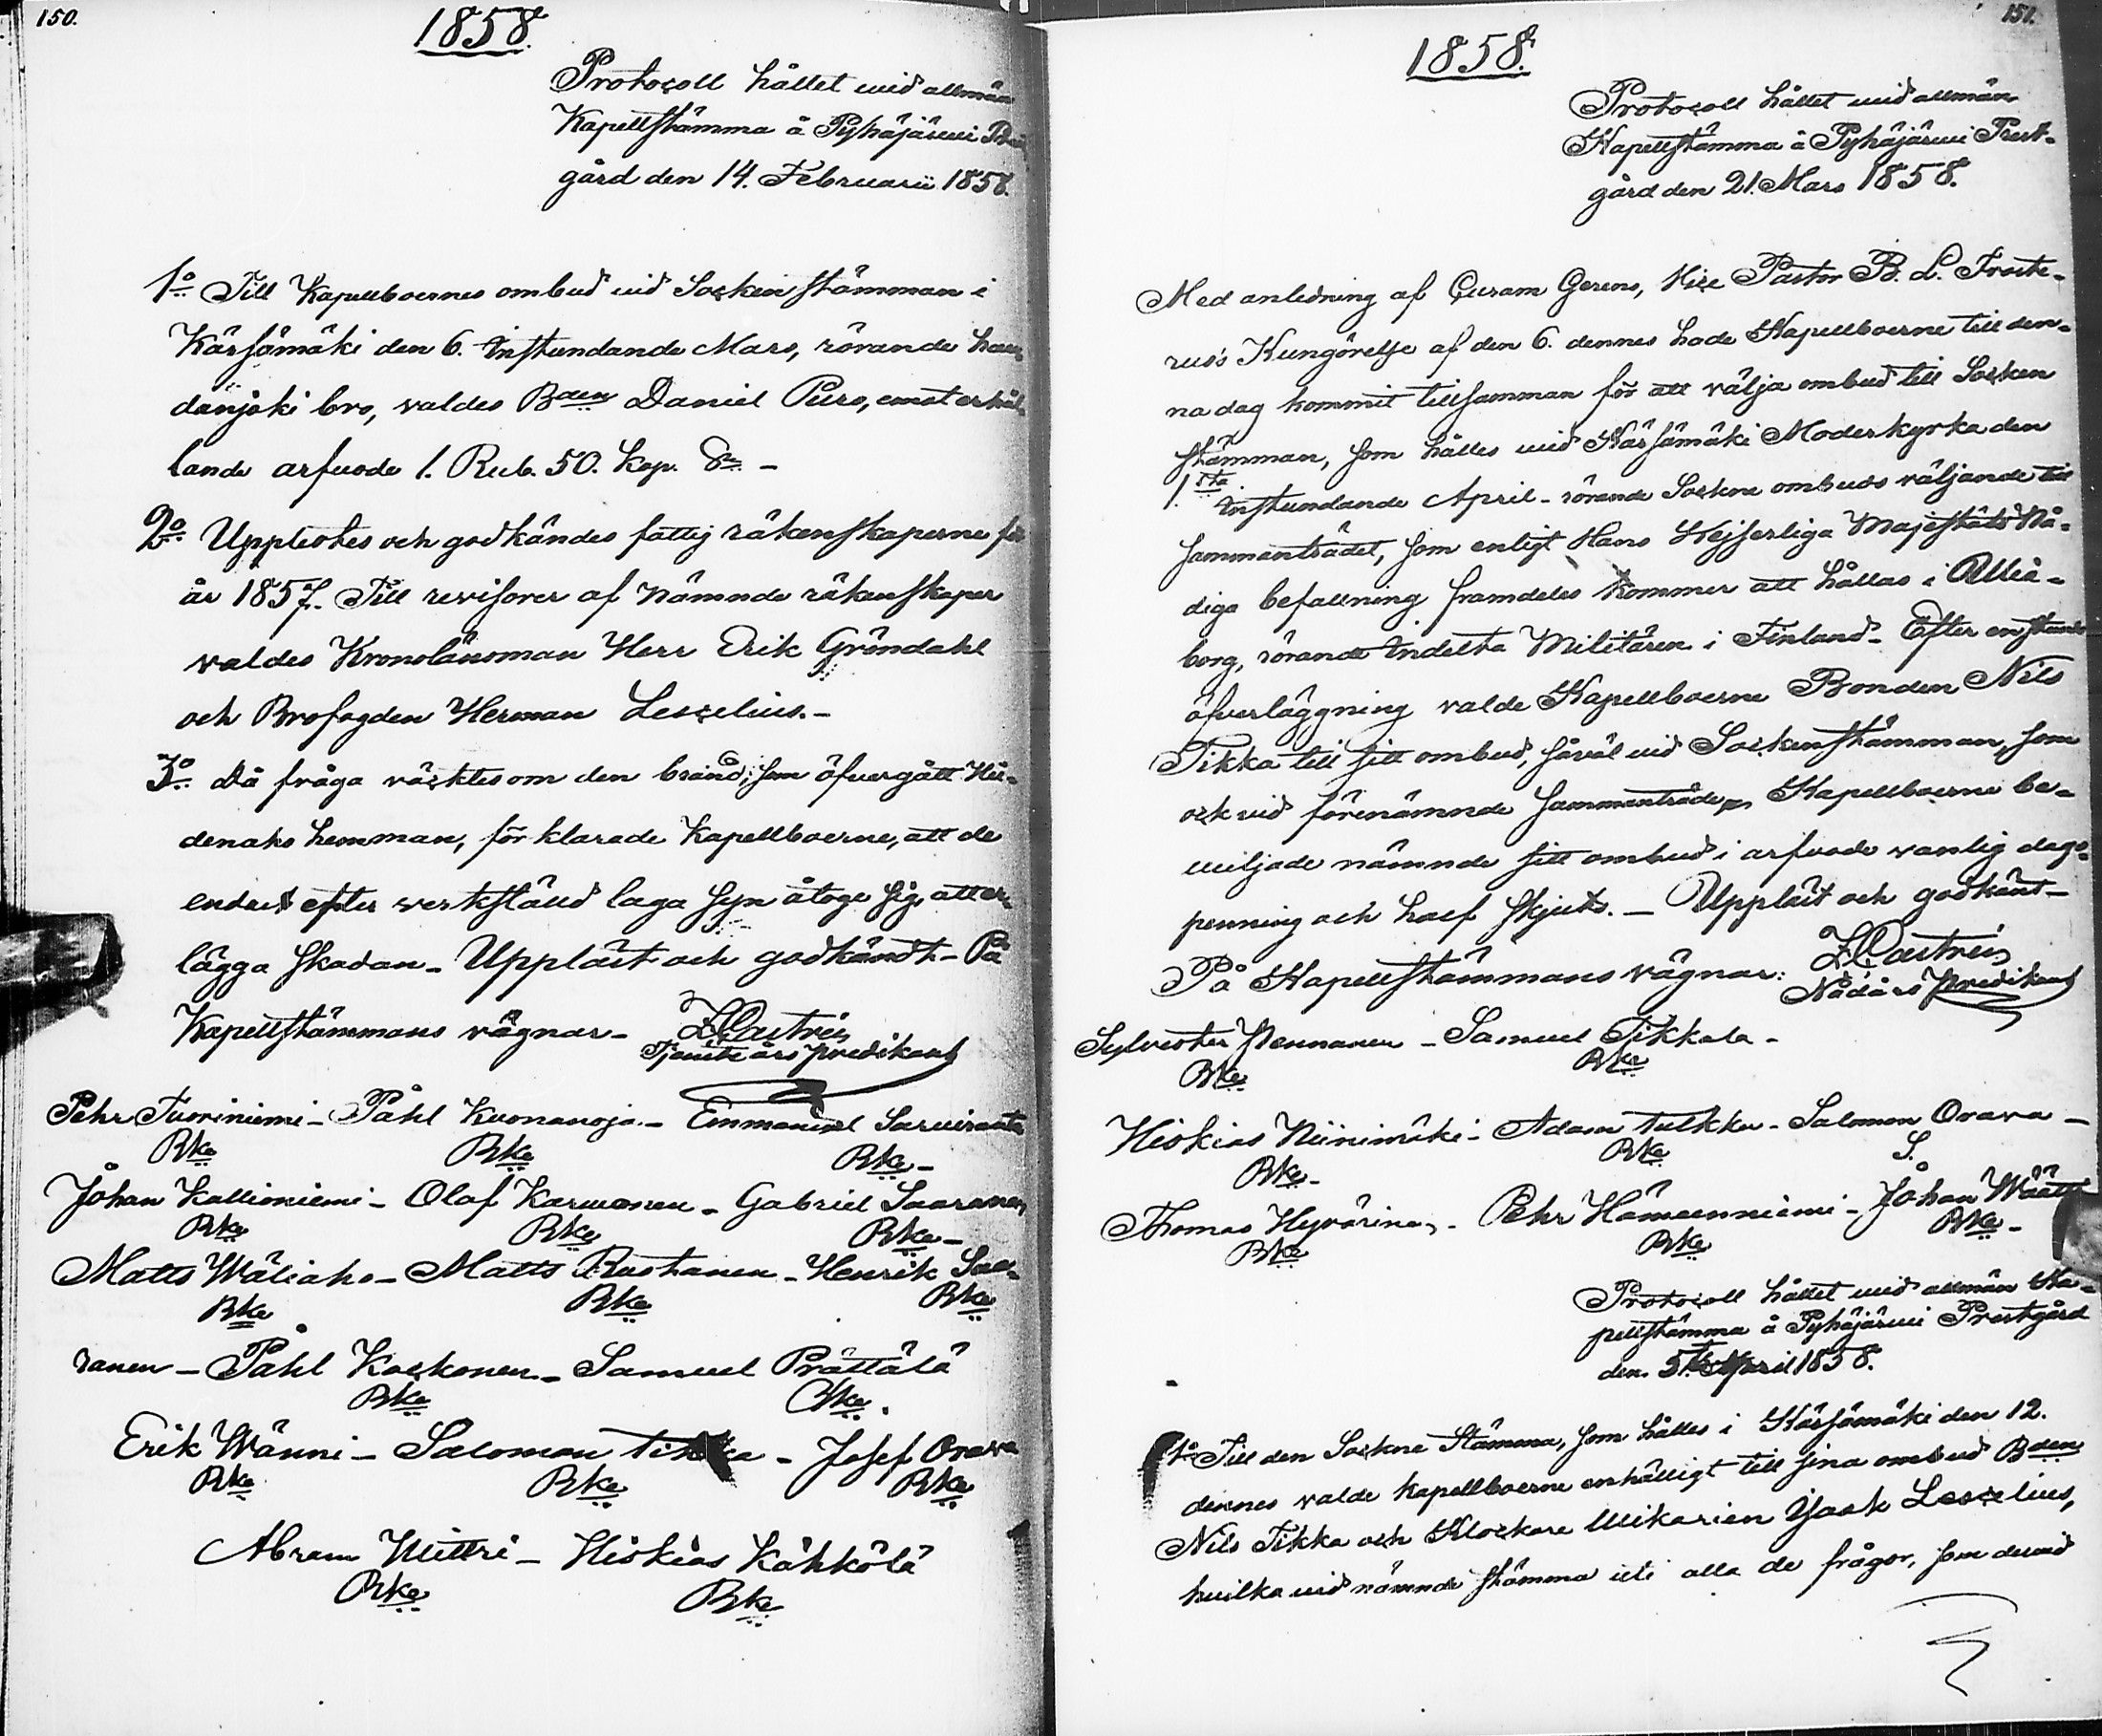 150.
1858.
Protocoll hållet wid allmän
Kapellstämma å Pyhäjärwi
gård den 14. Februarii 1858.
1o Till Kapellboernes ombud wid Sockenstämman i
Kärsämäki den 6. instundande Mars, rörande
danjoki bro, valdes Bden Daniel Puro, emot erhål-
lande arfvode 1. Rub. 50. kop. Sr. -
2o Upplästes och godkändes fattig räkenskaperne för
år 1857. Till revisorer af nämnde räkenskaper
valdes Kronolänsman Herr Erik Gröndahl
och Brofogden Herman Lescelius. -
3o Då fråga väcktes om den brand, som öfvergått Hii-
denaho hemman, förklarade Kapellboerne, att de
endast efter verkställd laga syn åtoge sig att er-
lägga skadan - Uppläst och godkändt - På
Kapellstämmans vägnar - Z. Castrén
Tjenste års predikant
Pehr Tuoriniemi - Påhl Kuonanoja - Emmanuel Sarwiranta
Bke Bke Bke -
Johan Kallioniemi - Olof Karwonen - Gabriel Saaranen
Bke Bke Bke -
Matts Wäliaho - Matts Ruotanen - Henrik Saa-
Bke Bke Bke
ranen - Påhl Koskonen - Samuel Prättälä
Bke Bke.
Erik Wänni - Salomon - Josef Orava
Bke Bke Bke
Abram Wittri - Hiskias Kähkölä
Bke Bke
151.
1858.
Protocoll hållet wid allmän
Kapellstämma å Pyhäjärwi Prest-
gård den 21. Mars 1858.
Med anledning af Curam Gerens, Vice Pastor B. L. Froste-
rus's Kungörelse af den 6. dennes hade Kapellboerne till den-
na dag kommit tillsamman för att välja ombud till Socken
stämman, som hålles wid Kärsämäki Moderkyrka den
1.sta instundande April - rörande Sockne ombuds väljande till
sammanträdet, som enligt Hans Kejserliga Majestäts Nå-
diga befallning framdeles kommer att hållas i Uleå-
borg, rörande indelta Militären i Finland - Efter en stunds
öfverläggning valde Kapellboerne Bonden Nils
Tikka till sitt ombud, såväl wid Sockenstämman, som
ock wid förenämnde sammanträde, Kapellboerne be-
wiljade nämnde sitt ombud i arfvode vanlig dags-
penning och half skjuts. - Uppläst och godkänt -
På Kapellstämmans vägnar: Z. Castrén
Nådårs predikant
Sylvester Pennanen - Samuel Tikkala -
Bke Bke
Hiskias Niinimäki - Adam Tulkku - Salomon Orava -
Bke - Bke S.
Thomas Hyvärinen - Pehr Hämeenniemi - Johan Wäätti
Bke Bke Bke -
Protocoll hållet wid allmän Ka-
pellstämma å Pyhäjärwi Prestgård
den 5te April 1858.
1o Till den Sockne Stämma, som hålles i Kärsämäki den 12.
dennes valde kapellboerne enhälligt till sina ombud Bden
Nils Tikka och Klockare Wikarien Isak Lescelius,
hwilka wid nämnde stämma uti alla de frågor, som derwid